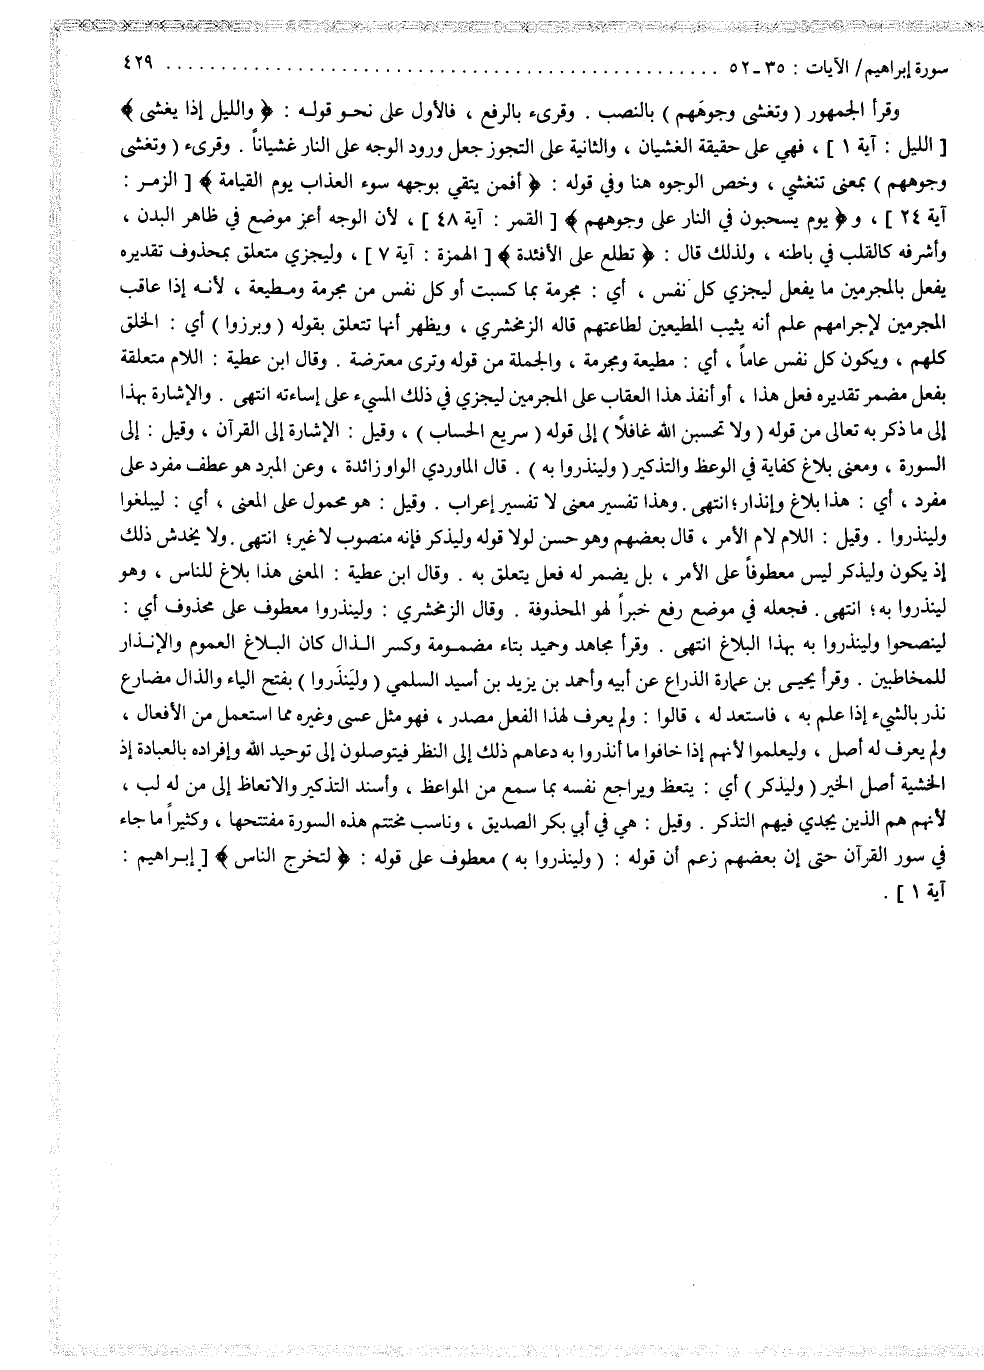 سورة إبراهيم/ الآيات : ٣٥ -٥٢ . . . . . . . . . . . . . . . . . . . . . . . . . . . . . . . . . . . . . . . . . . . . . . . . . . . ٤٢٩
وقرأ الجمهور ( وتغشى وجوهَهم ) بالنصب . وقرىء بالرفع ، فالأول على نحو قوله : ﴿ والليل إذا يغشى ﴾
[ الليل : آية ١ ] ، فهي على حقيقة الغشيان ، والثانية على التجوز جعل ورود الوجه على النار غشياناً . وقرىء ( وتغشى
وجوههم ) بمعنى تنغشي ، وخص الوجوه هنا وفي قوله : ﴿ أفمن يتقي بوجهه سوء العذاب يوم القيامة ﴾ [ الزمر :
آية ٢٤ ] ، و ﴿ يوم يسحبون في النار على وجوههم ﴾ [ القمر : آية ٤٨ ] ، لأن الوجه أعز موضع في ظاهر البدن ،
وأشرفه كالقلب في باطنه ، ولذلك قال : ﴿ تطلع على الأفئدة ﴾ [ الهمزة : آية ٧ ] ، وليجزي متعلق بمحذوف تقديره
يفعل بالمجرمين ما يفعل ليجزي كل نفس ، أي : مجرمة بما كسبت أو كل نفس من مجرمة ومطيعة ، لأنه إذا عاقب
المجرمين لإجرامهم علم أنه يثيب المطيعين لطاعتهم قاله الزمخشري ، ويظهر أنها تتعلق بقوله ( وبرزوا ) أي : الخلق
كلهم ، ويكون كل نفس عاماً ، أي : مطيعة ومجرمة ، والجملة من قوله وترى معترضة . وقال ابن عطية : اللام متعلقة
بفعل مضمر تقديره فعل هذا ، أو أنفذ هذا العقاب على المجرمين ليجزي في ذلك المسيء على إساءته انتهى . والإشارة بهذا
إلى ما ذكر به تعالى من قوله ( ولا تحسبن الله غافلاً ) إلى قوله ( سريع الحساب ) ، وقيل : الإشارة إلى القرآن ، وقيل : إلى
السورة ، ومعنى بلاغ كفاية في الوعظ والتذكير ( ولينذروا به ) . قال الماوردي الواو زائدة ، وعن المبرد هو عطف مفرد على
مفرد ، أي : هذا بلاغ وإنذار؛ انتهى . وهذا تفسير معنى لا تفسير إعراب . وقيل : هو محمول على المعنى ، أي : ليبلغوا
ولينذروا . وقيل : اللام لام الأمر ، قال بعضهم وهو حسن لولا قوله وليذكر فإنه منصوب لا غير؛ انتهى . ولا يخدش ذلك
إذ يكون وليذكر ليس معطوفاً على الأمر ، بل يضمر له فعل يتعلق به . وقال ابن عطية : المعنى هذا بلاغ للناس ، وهو
لينذروا به؛ انتهى . فجعله في موضع رفع خبراً لهو المحذوفة . وقال الزمخشري : ولينذروا معطوف على محذوف أي :
لينصحوا ولينذروا به بهذا البلاغ انتهى . وقرأ مجاهد وحميد بتاء مضمومة وكسر الذال كان البلاغ العموم والإنذار
للمخاطبين . وقرأ يحيى بن عمارة الذراع عن أبيه وأحمد بن يزيد بن أسيد السلمي ( وليَنذَروا ) بفتح الياء والذال مضارع
نذر بالشيء إذا علم به ، فاستعد له ، قالوا : ولم يعرف لهذا الفعل مصدر ، فهو مثل عسى وغيره مما استعمل من الأفعال ،
ولم يعرف له أصل ، وليعلموا لأنهم إذا خافوا ما أنذروا به دعاهم ذلك إلى النظر فيتوصلون إلى توحيد الله وإفراده بالعبادة إذ
الخشية أصل الخير ( وليذكر ) أي : يتعظ ويراجع نفسه بما سمع من المواعظ ، وأسند التذكير والاتعاظ إلى من له لب ،
لأنهم هم الذين يجدي فيهم التذكر . وقيل : هي في أبي بكر الصديق ، وناسب مختتم هذه السورة مفتتحها ، وكثيراً ما جاء
في سور القرآن حتى إن بعضهم زعم أن قوله : ( ولينذروا به ) معطوف على قوله : ﴿ لتخرج الناس ﴾ [ إبراهيم :
آية ١ ] .